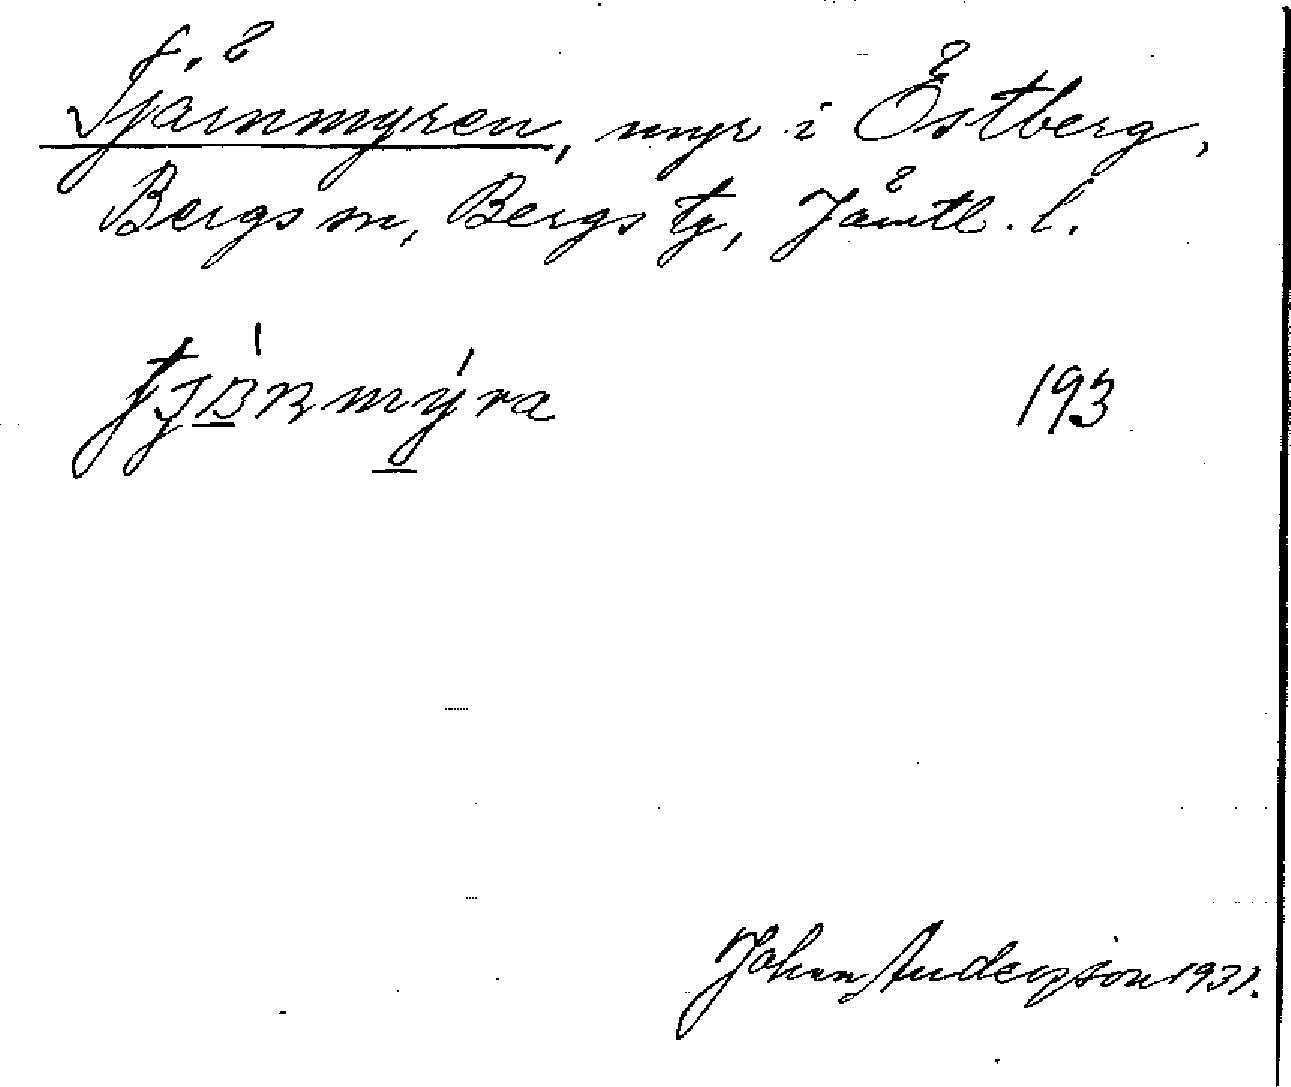 Tjärnmyren, myr i Östberg,
Bergs sn, Bergs tg, Jämtl. l.
193
Johan Andersson 1931.